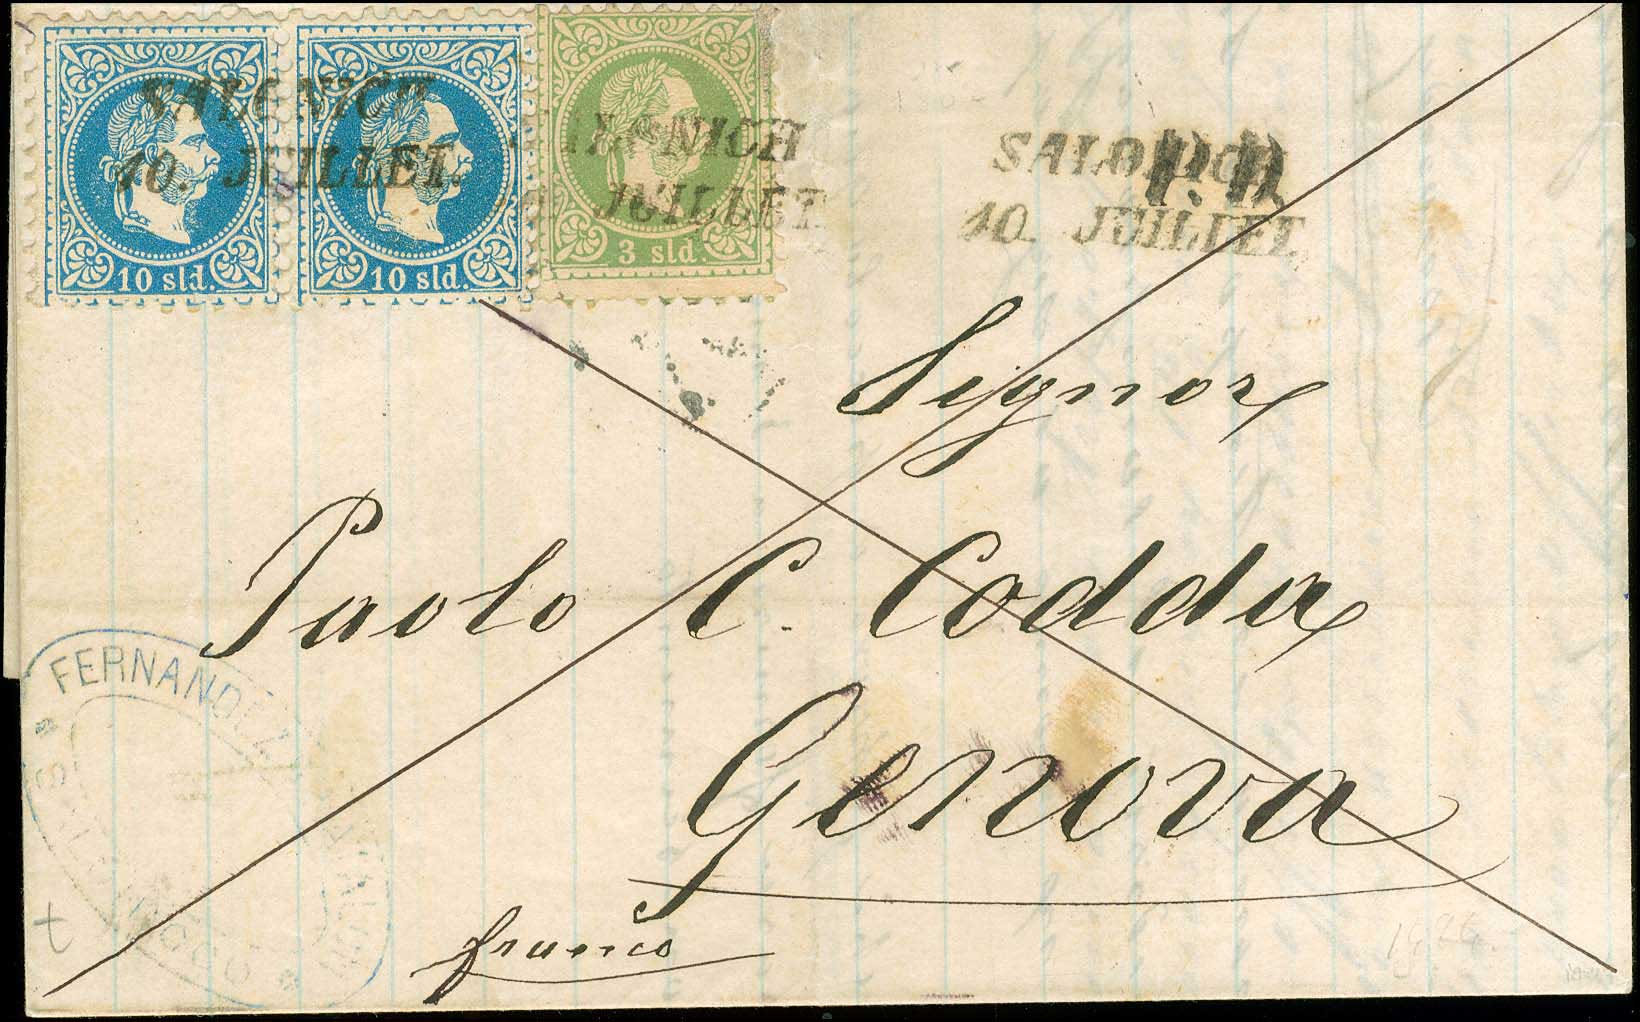 SALONICH
10. JUILLET.
10 sld.
10 sld.
SALONICH
10. JUILLET.
3 sld.
SALONICH
10. JUILLET.
P.D.
Signor
Paolo C. Codda
Genova
franco
FERNANDEZ
SALONICCO